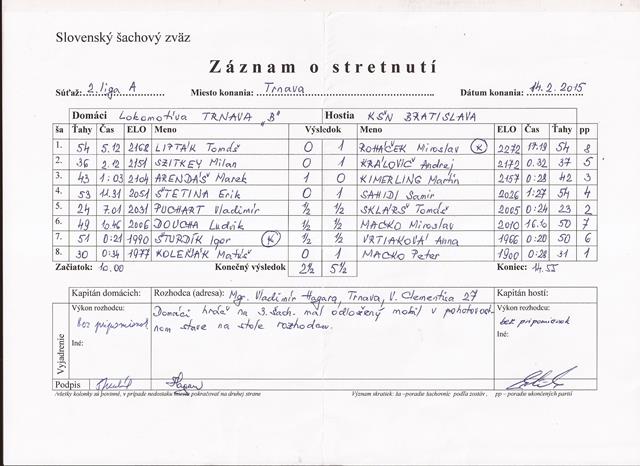 Slovenský šachový zväz
Záznam o stretnutí
Súťaž: 2. liga A Miesto konania: Trnava Dátum konania: 14.2.2015
Domáci Lokomotíva TRNAVA „B" Hostia KŠN BRATISLAVA
ša Ťahy Čas ELO Meno Výsledok Meno ELO Čas Ťahy pp
1. 54 5.12 2168 LIPTÁK Tomáš 0 1 ROHÁČEK Miroslav (K) 2272 17:19 54 8
2. 36 2.12 2151 SZITKEY Milan 0 1 KRÁĽOVIČ Andrej 2172 0:32 37 5
3. 43 1:03 2104 ARENDÁŠ Marek 1 0 KIMERLING Martin 2157 0:28 42 3
4. 53 11.31 2051 ŠTETINA Erik 0 1 SAHIDI Samir 2026 1:27 54 4
5. 24 7.01 2031 PUCHART Vladimír ½ ½ SKLÁRŠ Tomáš 2005 0:24 23 2
6. 49 10.46 2006 DOUCHA Ludvik ½ ½ MACKO Miroslav 2010 16.10 50 7
7. 51 0:21 1990 ŠTURDÍK Igor (K) ½ ½ VRTIAKOVÁ Anna 1966 0:20 50 6
8. 30 0:34 1977 KOLEŇÁK Matúš 0 1 MACKO Peter 1900 0:28 31 1
Začiatok: 10.00 Konečný výsledok 2½ 5½ Koniec: 14.55
Kapitán domácich: Rozhodca (adresa): Mgr. Vladimír Hagara, Trnava, V. Clementisa 27 Kapitán hostí:
Vyjadrenie
Výkon rozhodcu: Domáci hráč na 3. šach. mal odložený mobil v pohotovost- Výkon rozhodcu:
bez pripomienok nom stave na stole rozhodcu. bez pripomienok
Iné: Iné:
Podpis
/všetky kolonky sú povinné, v prípade nedostatku miesta pokračovať na druhej strane Význam skratiek: ša –poradie šachovníc podľa zostáv , pp – poradie ukončených partií